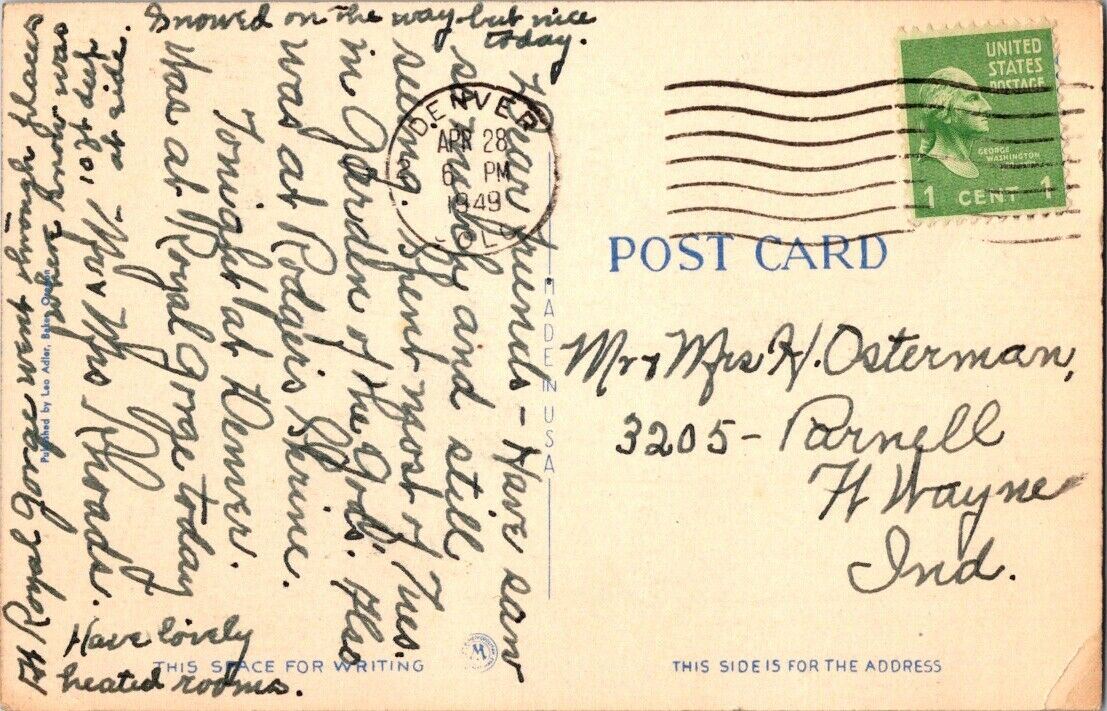 Snowed on the way but nice
today.
Dear Friends - Have saw
so much and still
seeing. Spent most of Tues.
in Garden of the Gods. Also
was at Rodgers Shrine.
Tonight at Denver.
Was at Royal Gorge today
- Mr & Mrs Rhoads.
At Royal Gorge went through places
where snow was
10 ft deep
at side.
Have lovely
heated rooms.
Published by Leo Adler, Baker, Oregon
THIS SPACE FOR WRITING
W
MADE IN USA
DENVER
APR 28
6 PM
1949
COLO
UNITED
STATES
POSTAGE
GEORGE
WASHINGTON
1 CENT 1
POST CARD
Mr & Mrs H. Osterman,
3205 - Parnell
Ft Wayne
Ind.
THIS SIDE IS FOR THE ADDRESS